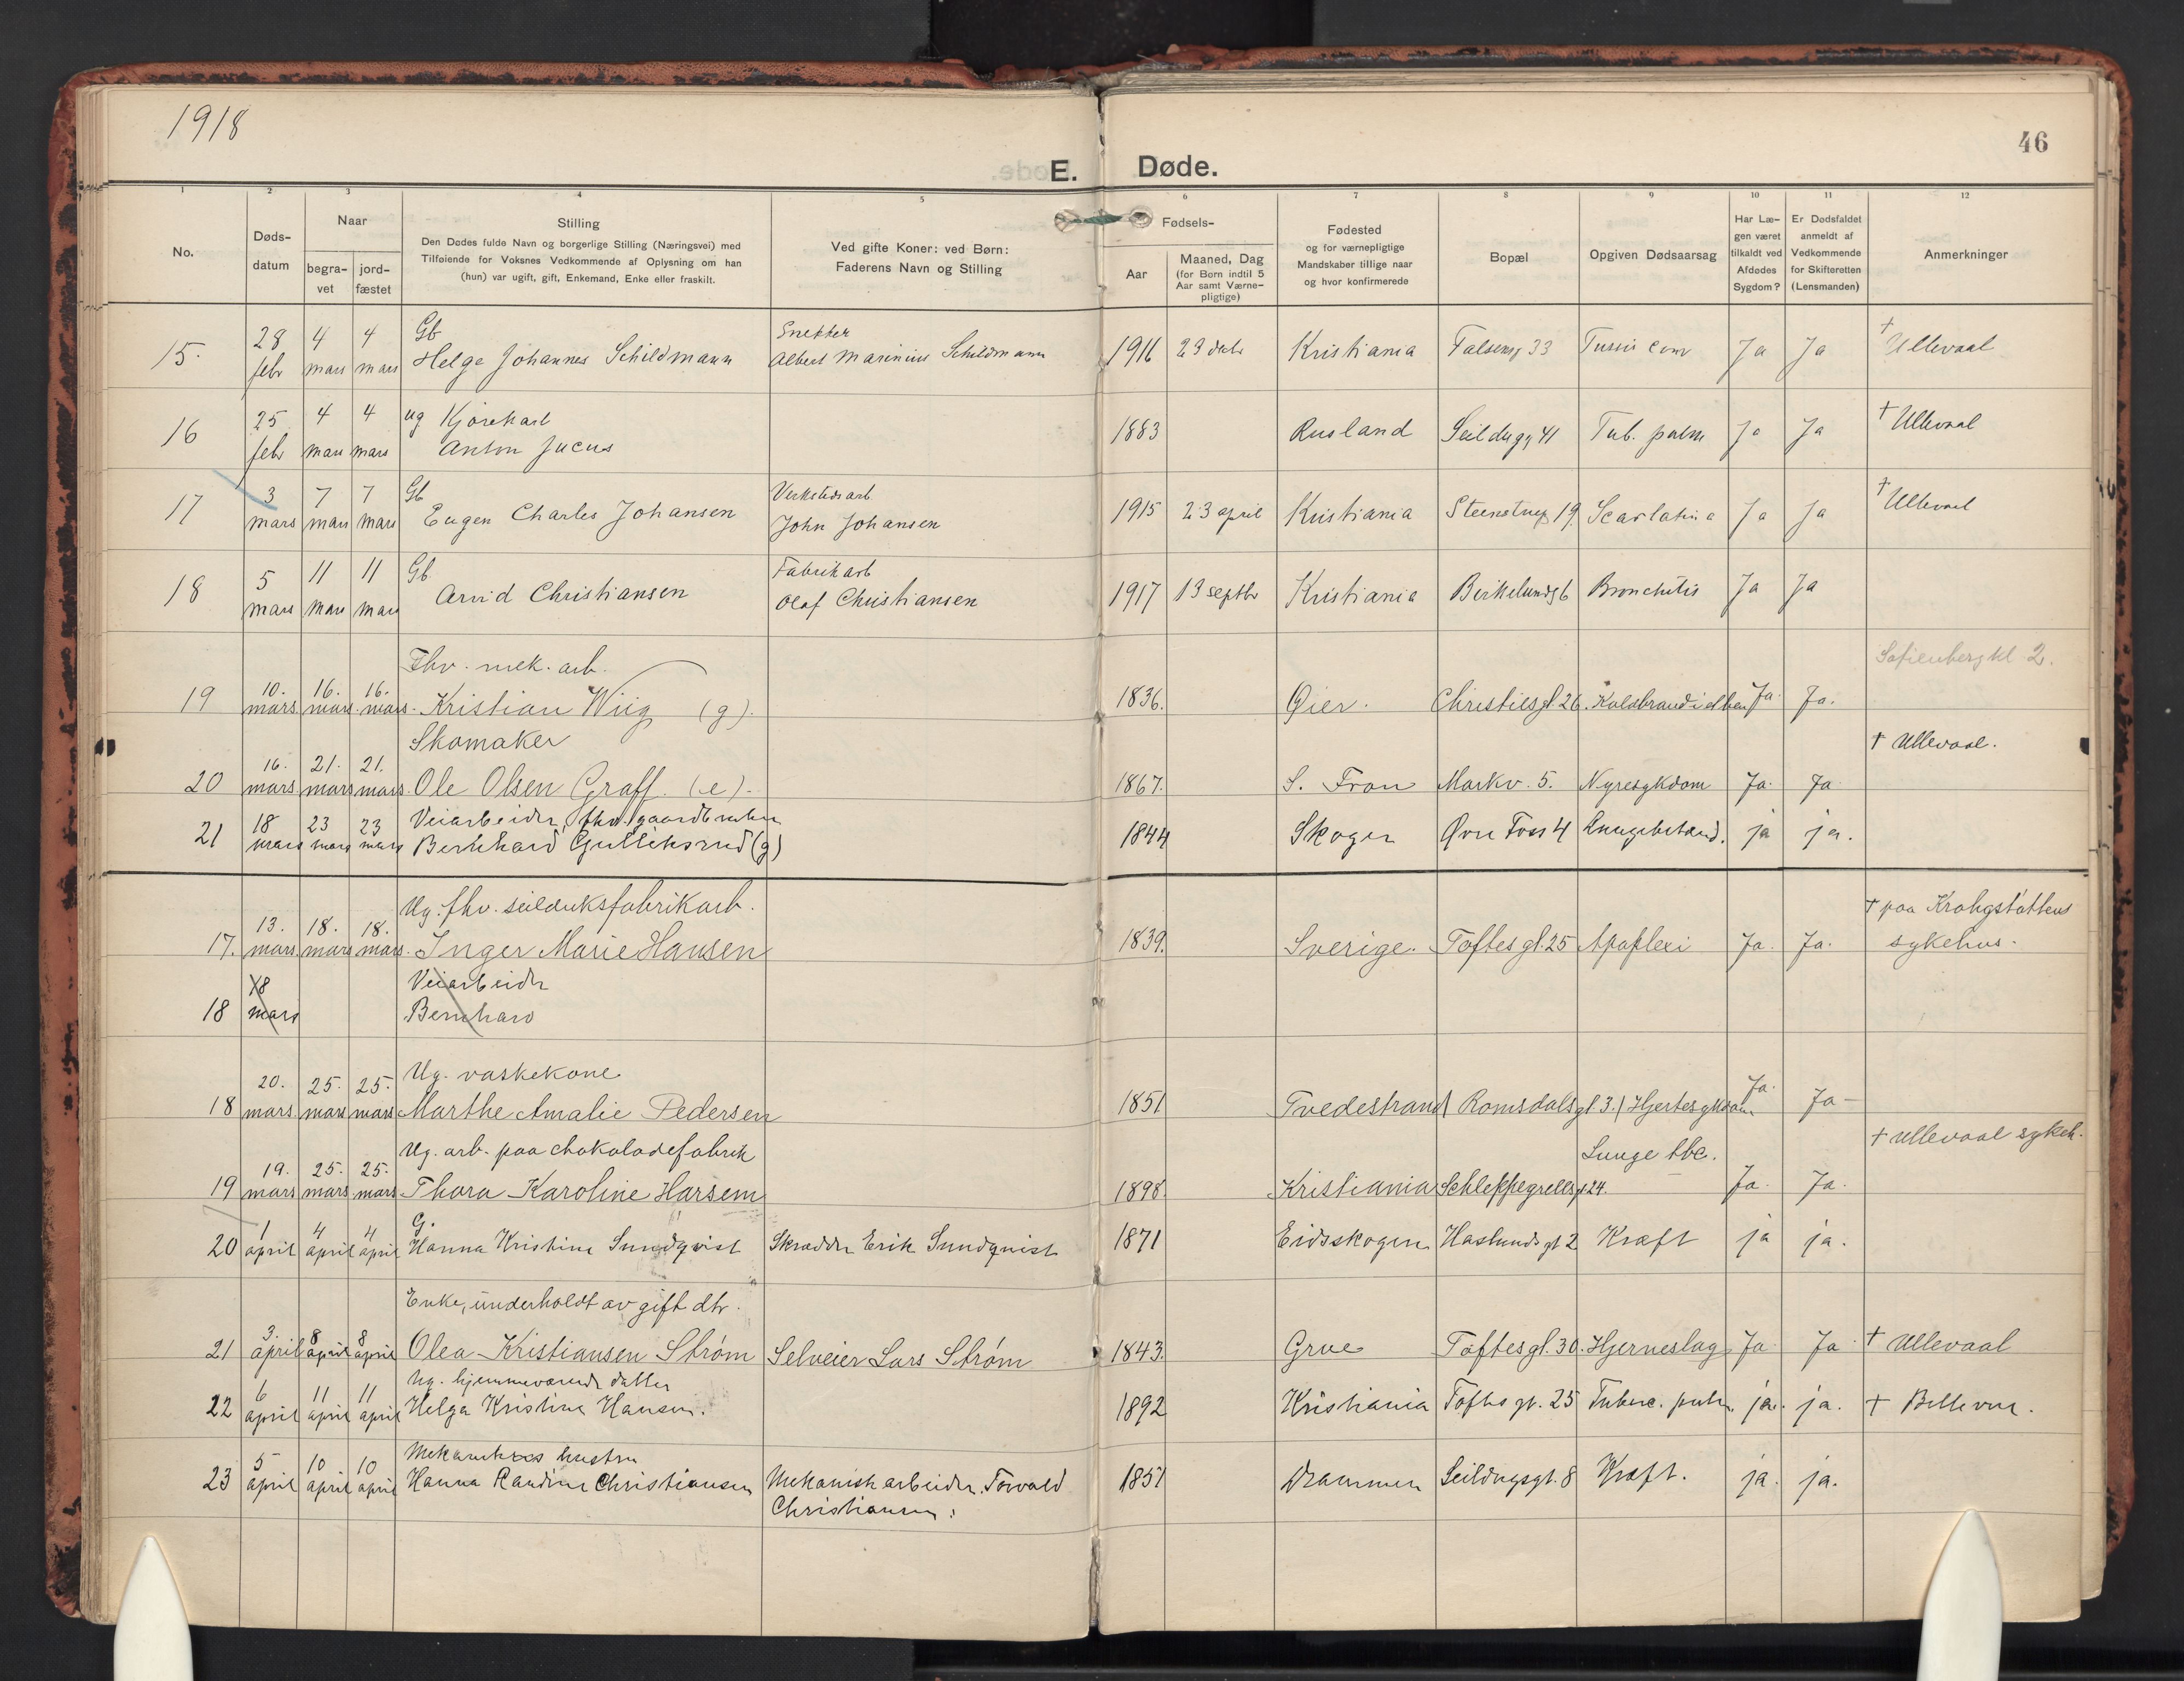 1918
46
E. Døde.
1 2 3 4 5 6 7 8 9 10 11 12
No.
Døds-
datum
Naar
begra-
vet
jord-
fæstet
Stilling
Den Dødes fulde Navn og borgerlige Stilling (Næringsvei) med
Tilføiende for Voksnes Vedkommende af Oplysning om han
(hun) var ugift, gift, Enkemand, Enke eller fraskilt.
Ved gifte Koner: ved Børn:
Faderens Navn og Stilling
Fødsels-
Aar
Maaned, Dag
(for Børn indtil 5
Aar samt Værne-
pligtige)
Fødested
og for værnepligtige
Mandskaber tillige naar
og hvor konfirmerede
Bopæl
Opgiven Dødsaarsag
Har Læ-
gen været
tilkaldt ved
Afdødes
Sygdom?
Er Dødsfaldet
anmeldt af
Vedkommende
for Skifteretten
(Lensmanden)
Anmerkninger
28 4 4 Gb Snekker †
15. febr mars mars Helge Johannes Schildmann Albert Marinius Schildmann 1916 23 Kristiania 33 Ja Ja Ullevaal
25 4 4 ug Kjørekarl
16 febr mars mars Anton Jucus 1883 Rusland Seildugg 41 Tub. pulm Ja Ja † Ullevaal
3 7 7 Gb Verkstedsarb
17 mars mars mars Eugen Charles Johansen John Johansen 1915 23 april Kristiania Steenstrupg 19 Scarlatina Ja Ja † Ullevaal
5 11 11 Gb. Fabrikarb
18 mars mars mars Arvid Christiansen Olaf Christiansen 1917 13 septbr Kristiania Birkelundg 6 Bronchitis Ja Ja
Fhv. mek. arb. Sofienberg kl 2.
10. 16. 16.
19 mars. mars. mars. Kristian Wiig (g). 1836. Øier. Christiesgt. 26. Koldbrand i Ja. Ja.
Skomaker † Ullevaal.
16. 21. 21.
20 mars. mars mars. Ole Olsen Graff. (e). 1867. S. Fron Markv. 5. Nyresykdom Ja. Ja.
18 23 23 Veiarbeider, fhv.
21 mars mars mars Bernhard Gulliksrud (g) 1844 Skoger Øvre Foss 4 ja ja.
Ug. fhv. seilduksfabrikarb. † paa Krohgstøttens
13. 18. 18.
17. mars. mars mars. Inger Marie Hansen 1839. Sverige. Toftesgt. 25 Apoplexi Ja. Ja. sykehus.
18 Veiarbeider
18 mars Bernhard
Ug. vaskekone
20. 25. 25.
18 mars. mars mars Marthe Amalie Pedersen 1851 Tvedestrand Romsdalsgt 3. Hjertesykdom Ja. Ja
Ug. arb. paa chokoladefabrik Lunge tbc. † Ullevaal sykeh.
19. 25. 25.
19 mars mars mars Thora Karoline Harsem 1898. Kristiania Schleppegrellsgt 24. Ja. Ja.
1 4 4 G.
20 april april april Hanna Kristine Sundqvist Skrædder Erik Sundqvist 1871 Eidsskogen Haslundsgt 2 Kræft ja ja.
Enke, underholdt av gift dtr.
3. 8 8
21 april april april Olea Kristiansen Strøm Selveier Lars Strøm 1843. Grue Toftesgt. 30. Hjerneslag Ja. Ja. † Ullevaal
6 11 11 Ug. hjemmeværende datter
22 april april april Helga Kristine Hansen. 1892 Kristiania Toftes gt. 25 Tuberc. pulm. ja. ja. † Bellevue.
5 10 10 Mekanikers hustru
23 april april april Hanna Randine Christiansen Mekanisk arbeider. Torvald 1851 Drammen Seildugsgt. 8 Kræft. ja. ja.
Christiansen.